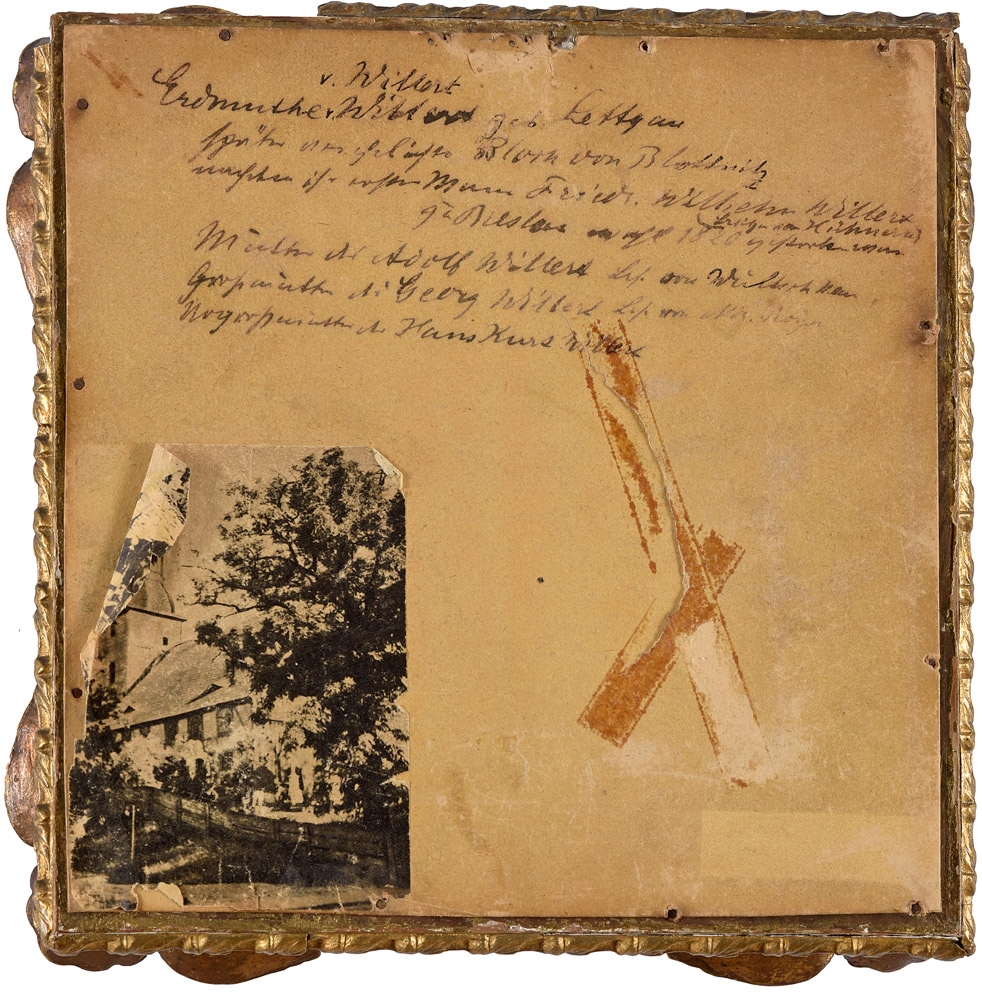 v. Willert
Erdmuthe v. Willert geb. Lettgau
später verehelichte Bloch von Blottnitz
nachdem ihr erster Mann Friedr. Wilhelm Willert
zu Breslau 1820 gestorben war
Mutter des Adolf Willert Bes. von
Großmutter des Georg Willert Bes. von
Urgroßmutter des Hans Kurt Willert